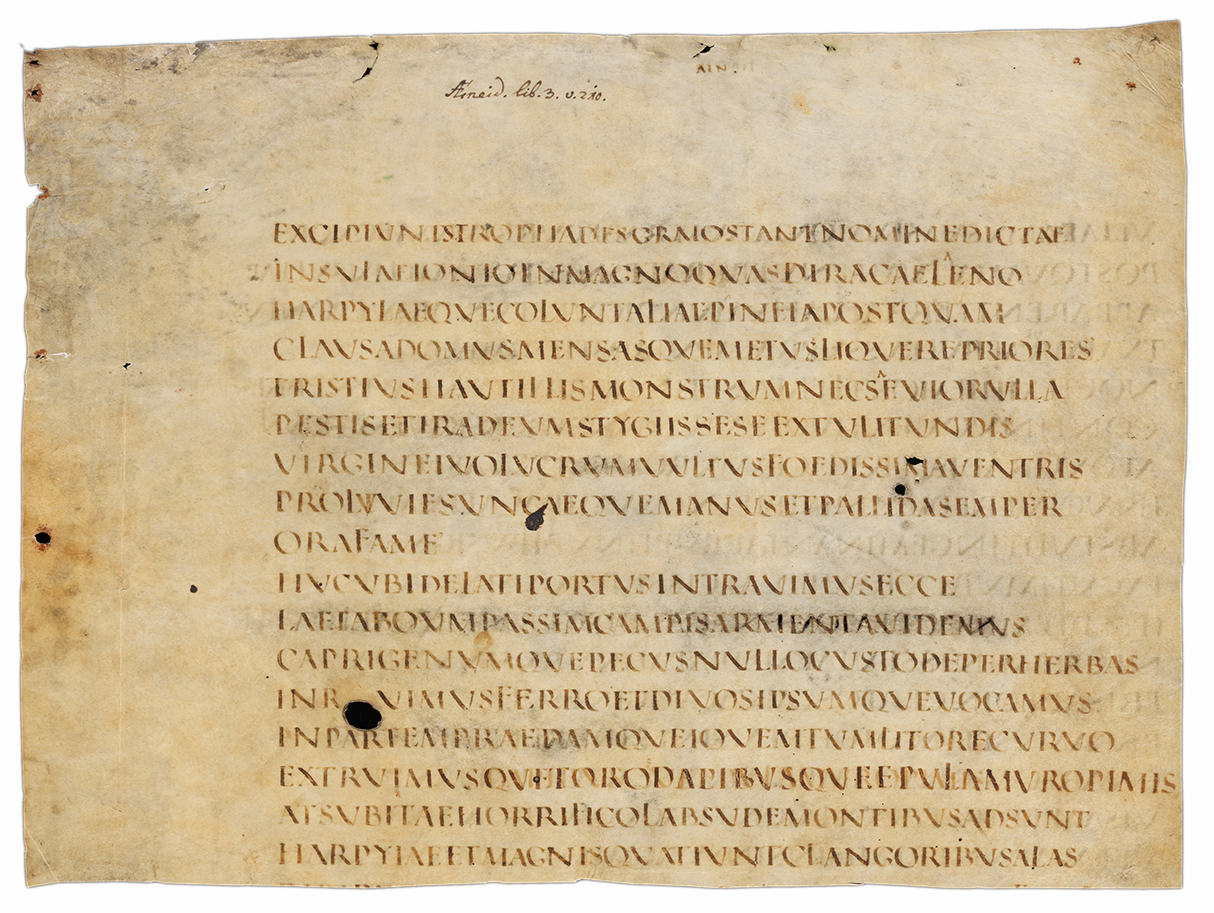 15
Æneid. lib. 3. v. 210.
EXCIPIVNTSTROPHADESGRAIOSTANTNOMINEDICTAE
INSVLAEIONIOINMAGNOQVASDIRACAELENO
HARPYIAEQVECOLVNTALIAEPINEIAPOSTQVAM
CLAVSADOMVSMENSASQVEMETVSLIQVEREPRIORES
TRISTIVSHAVTILLISMONSTRVMNECSEVIORVLLA
PESTISETIRADEVMSTYGIISSESEEXTVLITVNDIS
VIRGINEIVOLVCRVMVVLTVSFOEDISSIMAVENTRIS
PROLVVIESVNCAEQVEMANVSETPALLIDASEMPER
ORAFAME
HVCVBIDELATIPORTVSINTRAVIMVSECCE
LAETABOVMPASSIMCAMPISARMENTAVIDEMVS
CAPRIGENVMQVEPECVSNVLLOCVSTODEPERHERBAS
INR VIMVSFERROETDIVOSIPSVMQVEVOCAMVS
INPARTEMPRAEDAMQVEIOVEMTVMLITORECVRVO
EXTRVIMVSQVETORODAPIBVSQVEEPVLAMVROPIMIS
ATSVBITAEHORRIFICOLABSVDEMONTIBVSADSVNT
HARPYIAEETMAGNISQVATIVNTCLANGORIBVSALAS